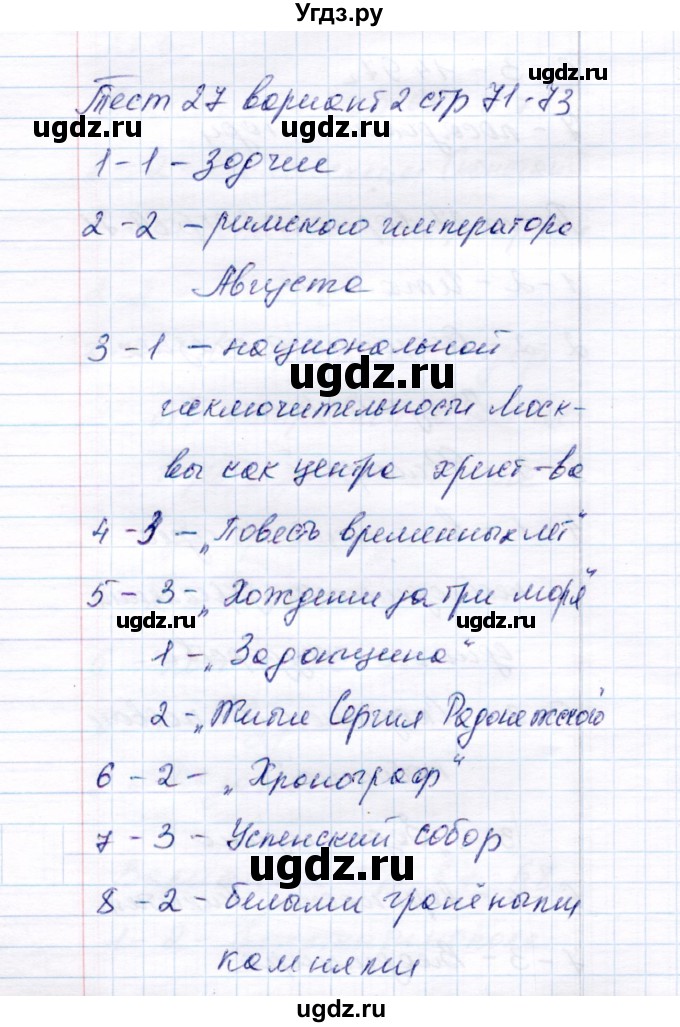 Угдз.ру
Тест 27 вариант 2 стр 71-73
ugdz.ru
ugdz.ru
1 - 1 - Зодчие
2 - 2 - римского императора
ugdz.ru
ugdz.ru
Августа
3 - 1 - национальной
ugdz.ru
исключительности Моск-
вы как центра христ-ва
4 - 3 - „Повесть временных лет“
ugdz.ru
5 - 3 - „Хождение за три моря“
ugdz.ru
ugdz.ru
1 - „Задонщина“
2 - „Житие Сергия Радонежского
6 - 2 - „Хронограф“
ugdz.ru
7 - 3 - Успенский собор
ugdz.ru
8 - 2 - белыми гранёными
ugdz.ru
ugdz.ru
камнями
ugdz.ru